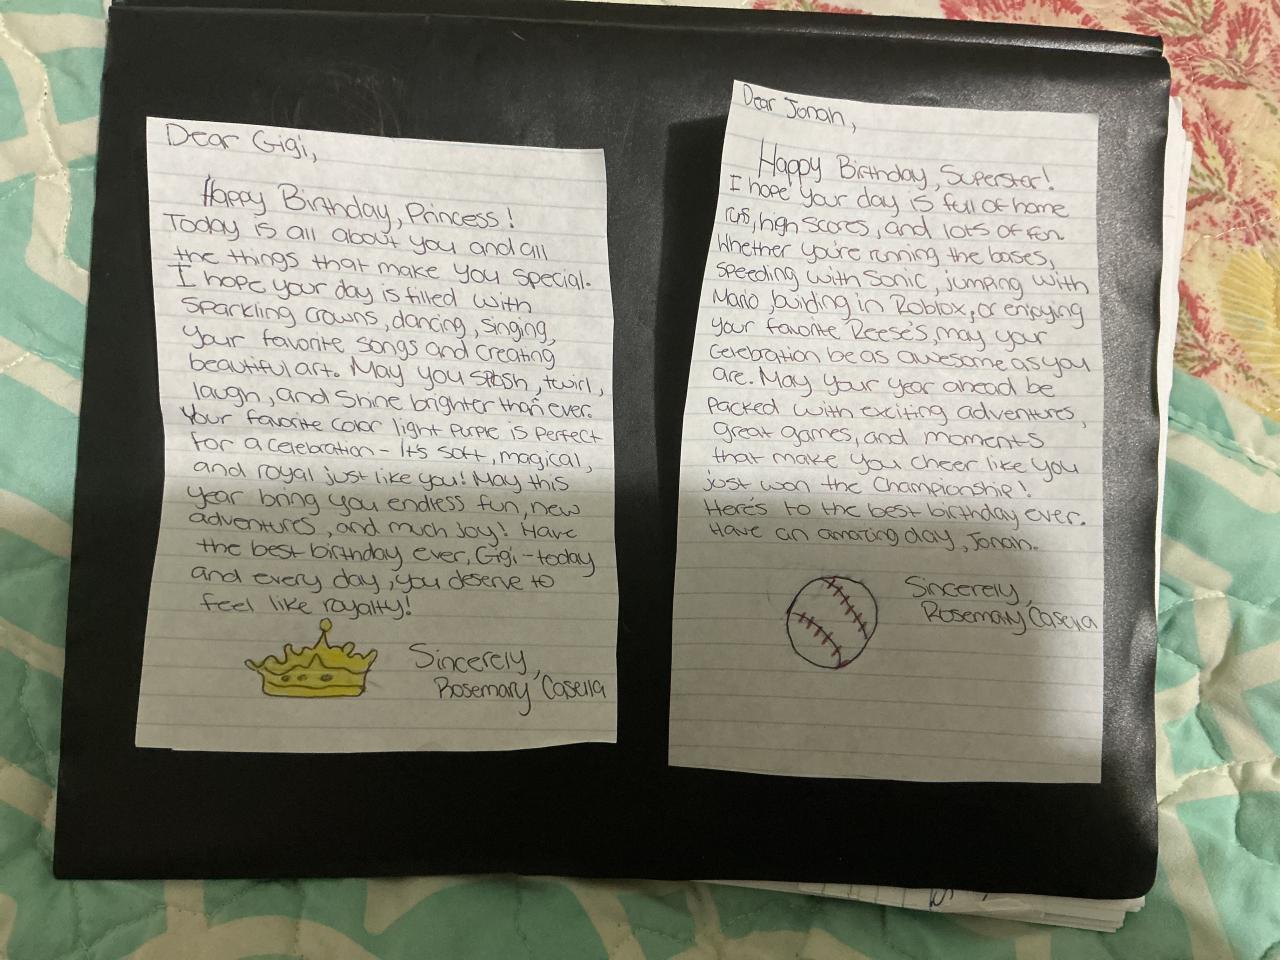 Dear Gigi,
Happy Birthday, Princess!
Today is all about you and all
the things that make you special.
I hope your day is filled with
sparkling crowns, dancing, singing,
your favorite songs and creating
beautiful art. May you splash, twirl,
laugh, and shine brighter than ever.
Your favorite color light purple is perfect
for a celebration - It's soft, magical,
and royal just like you! May this
year bring you endless fun, new
adventures, and much joy! Have
the best birthday ever, Gigi - today
and every day, you deserve to
feel like royalty!
Sincerely,
Rosemary Casella
Dear Jonah,
Happy Birthday, Superstar!
I hope your day is full of home
runs, high scores, and lots of fun.
Whether you're running the bases,
speeding with Sonic, jumping with
Mario, building in Roblox, or enjoying
your favorite Reese's, may your
celebration be as awesome as you
are. May your year ahead be
packed with exciting adventures,
great games, and moments
that make you cheer like you
just won the Championship!
Here's to the best birthday ever.
Have an amazing day, Jonah.
Sincerely,
Rosemary Casella